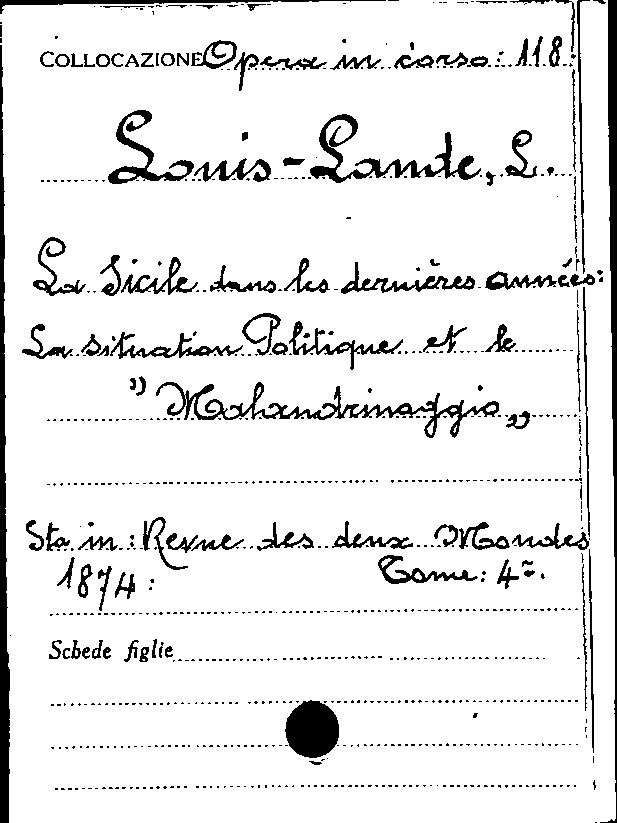 COLLOCAZIONE Opera in corso: 118:
Louis-Lande, L.
La Sicile dans les dernières années:
La situation Politique et le
"Malandrinaggio„
Sta in: Revue des deux Mondes
1874: Tome: 4°.
Schede figlie